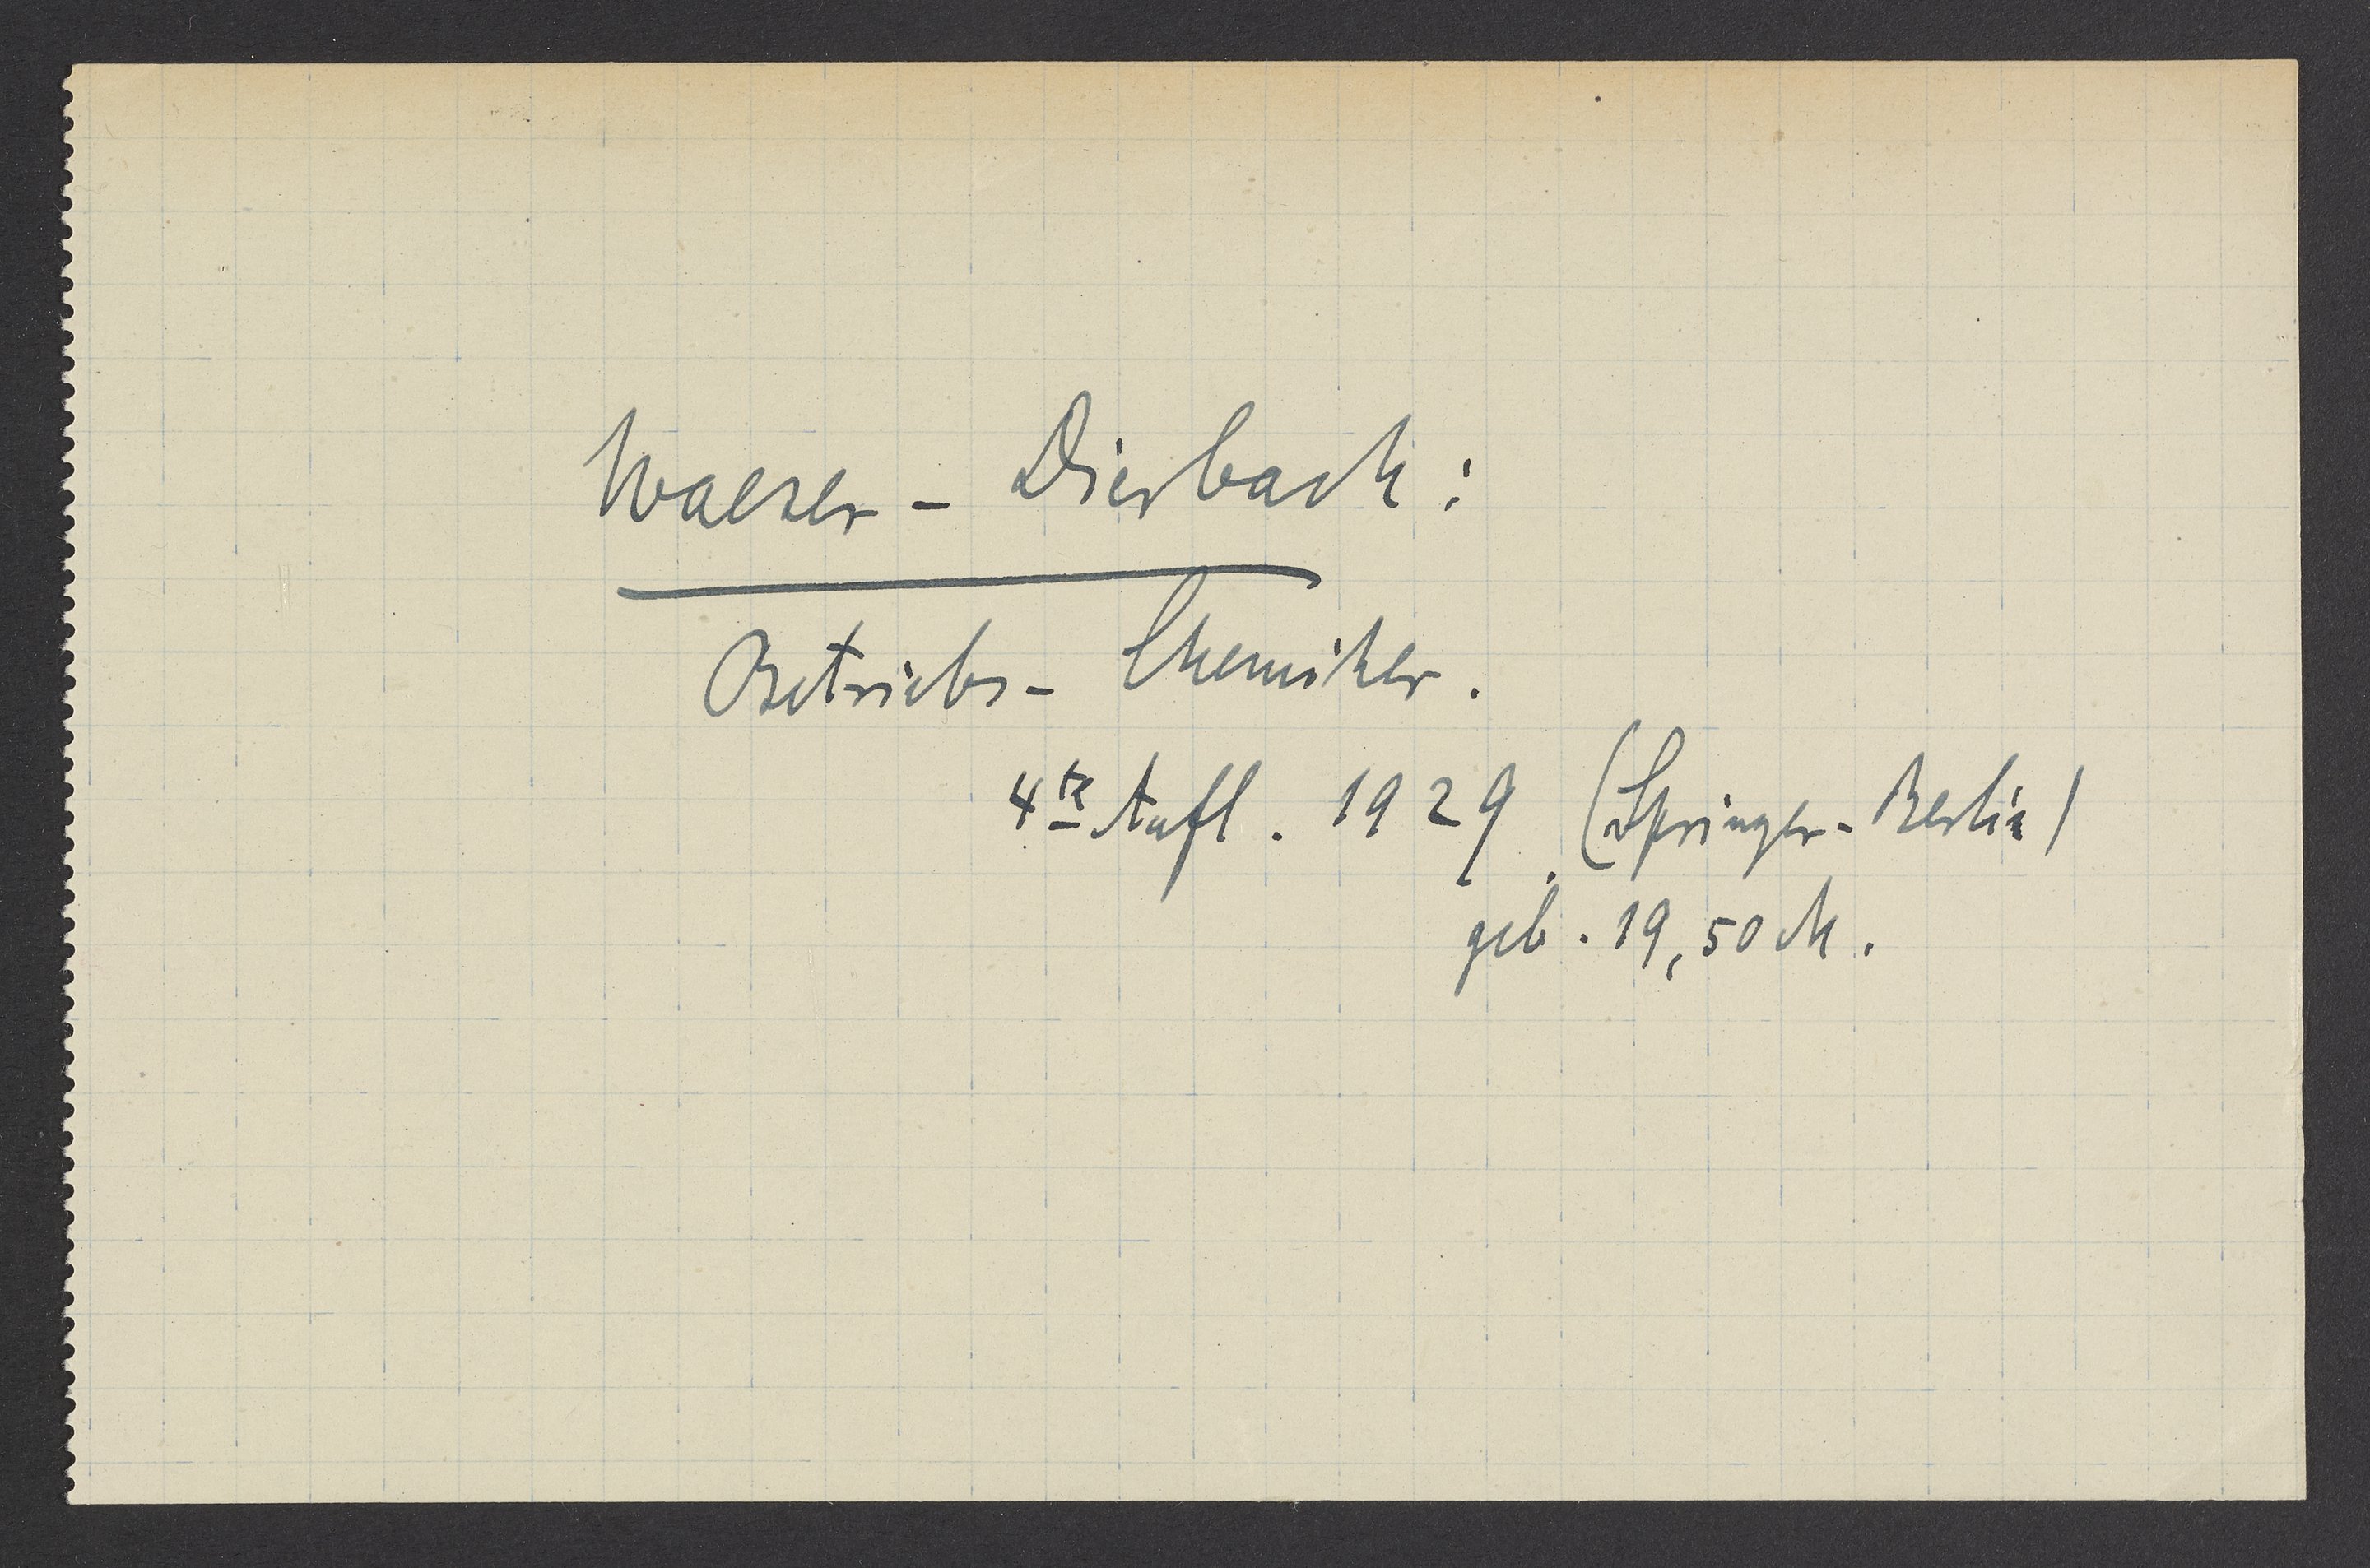 Waeser - Dierbach:
Betriebs- Chemiker.
4te Aufl. 1929. (Springer-Berlin)
geb. 19,50 M.